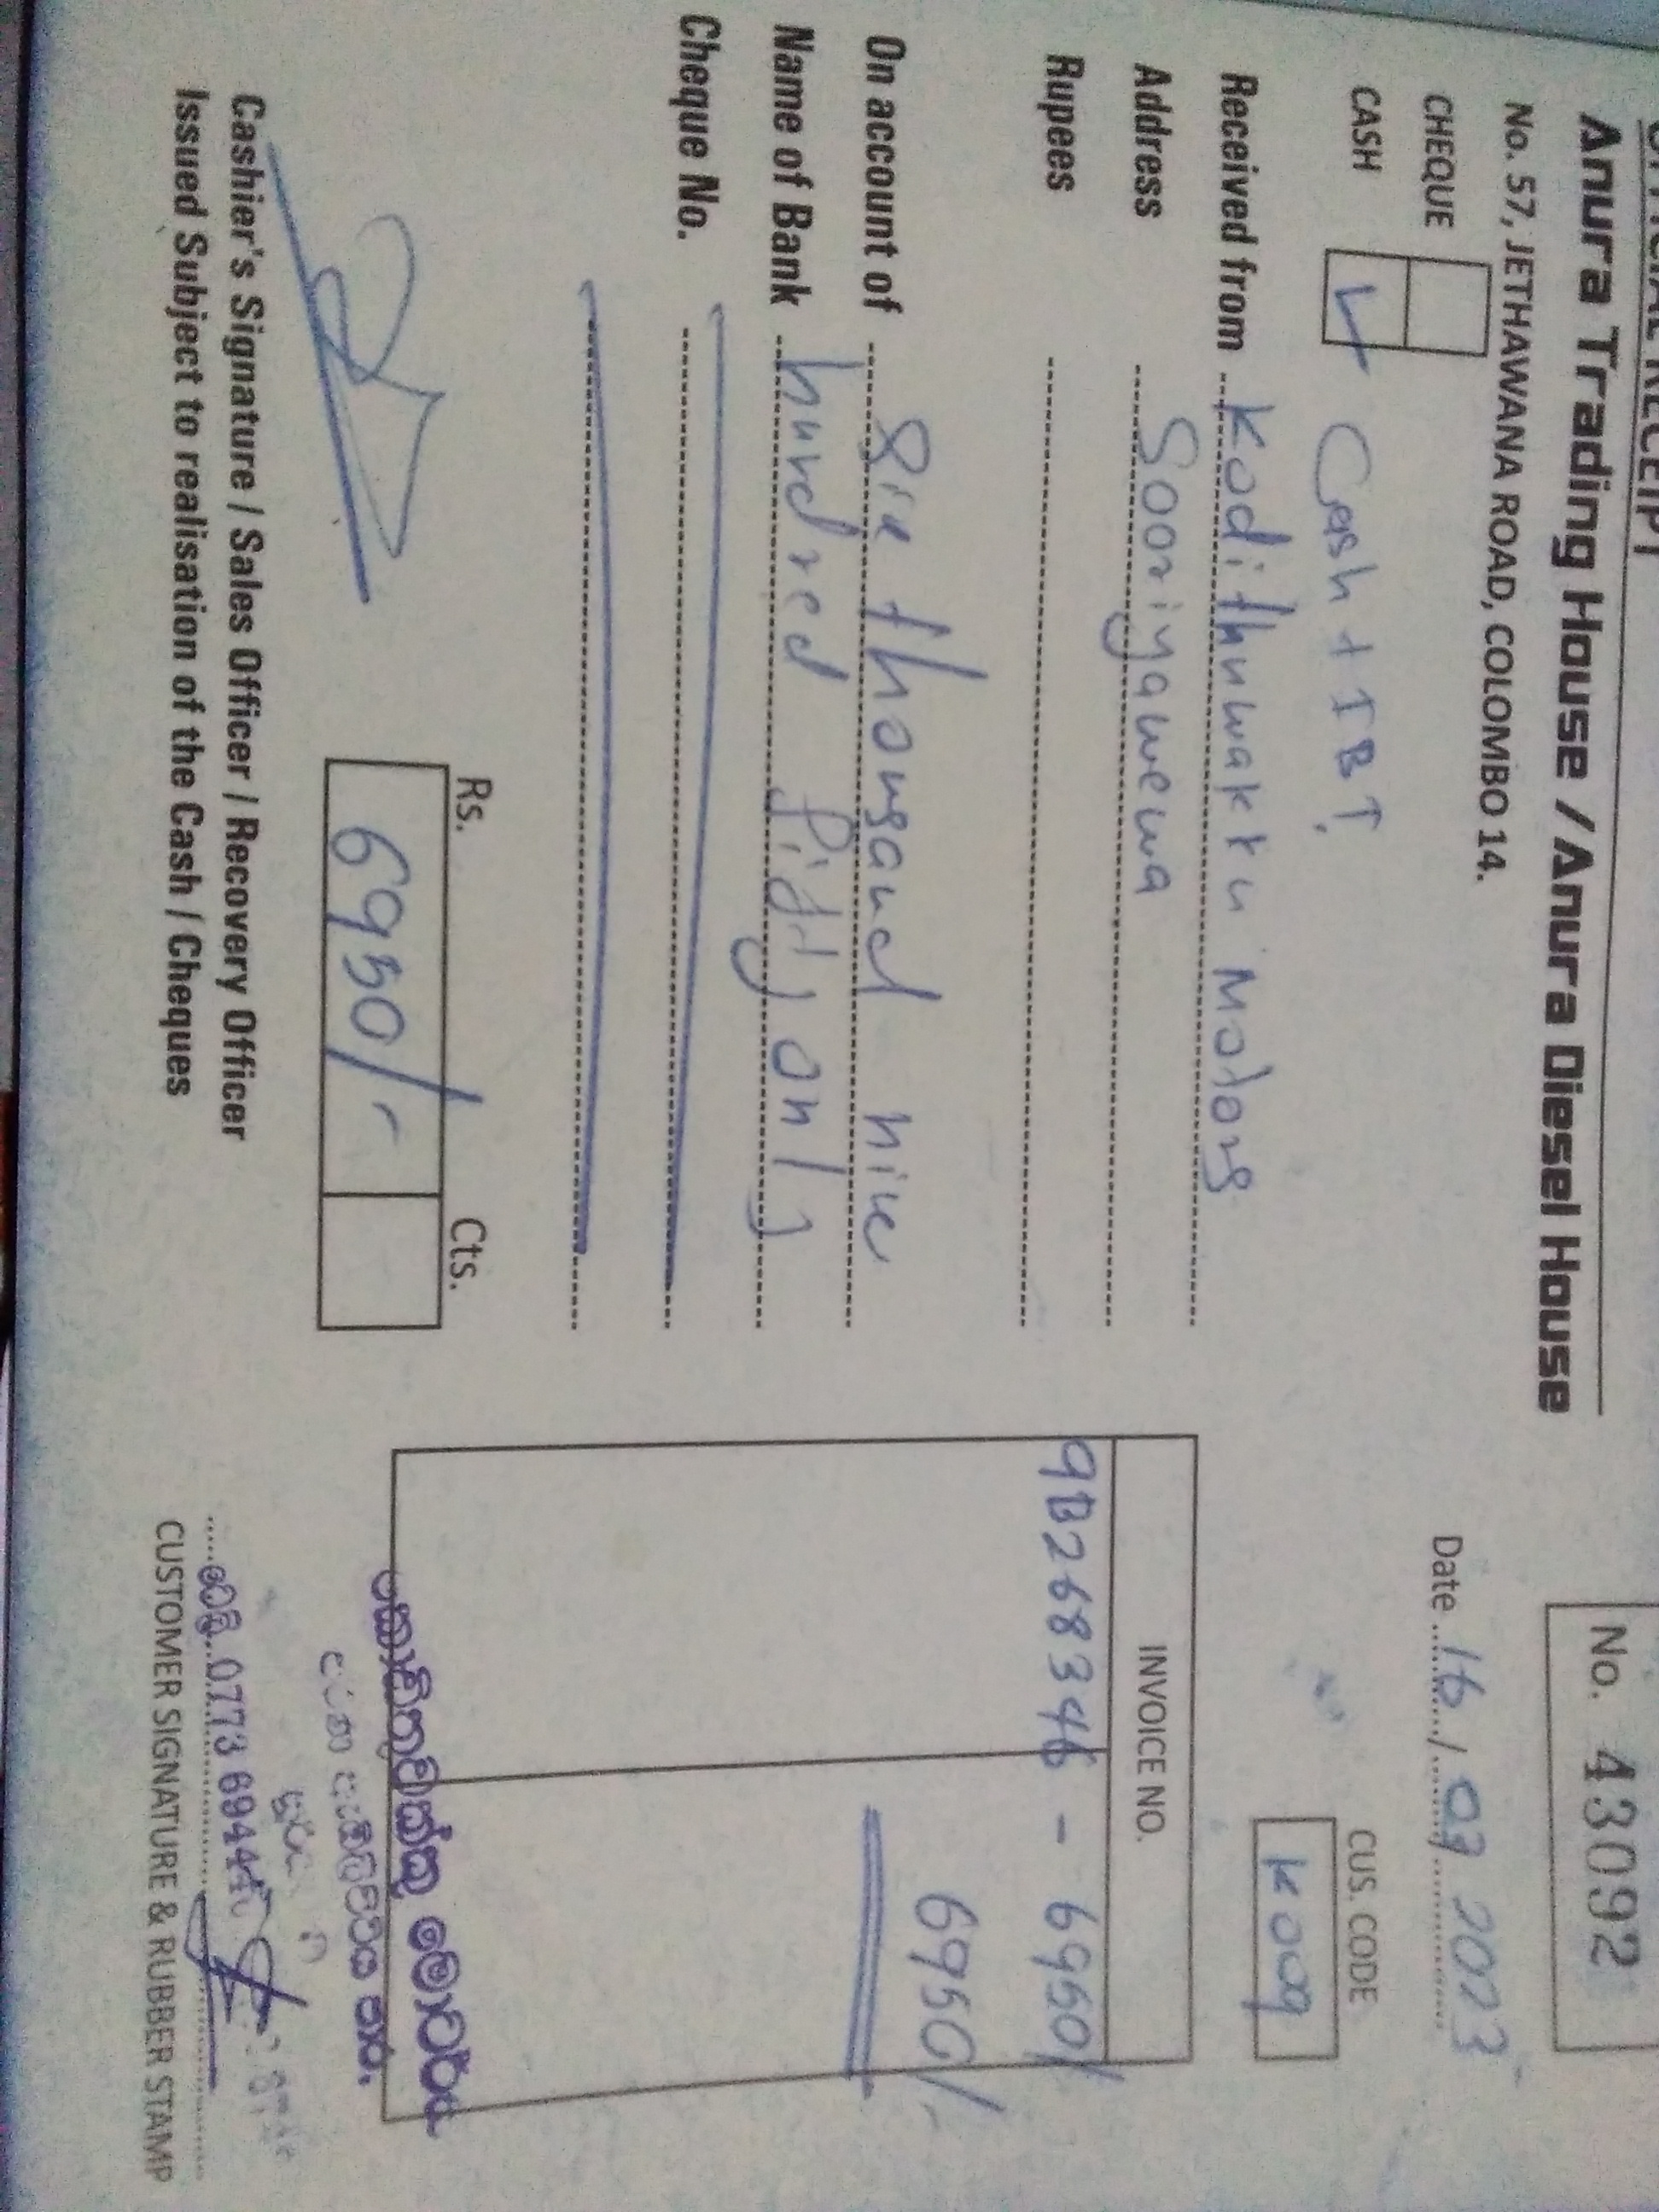 OFFICIAL RECEIPT
Anura Trading House / Anura Diesel House
No. 57, JETHAWANA ROAD, COLOMBO 14.
No. 43092
CHEQUE
CASH Cash + IBT.
Date 16/03 2023
CUS. CODE
K009
Received from Kodithuwakku Motors
Address Sooriyawewa
Rupees
INVOICE NO.
9B268346 - 6950/
6950/-
On account of Six thousand nine
Name of Bank hundred fifty only
Cheque No.
Rs. Cts.
6950/-
කොඩිතුවක්කු මෝටර්ස්
පාර,
ටෙලි. 0773 6944
Cashier's Signature / Sales Officer / Recovery Officer
Issued Subject to realisation of the Cash / Cheques
CUSTOMER SIGNATURE & RUBBER STAMP